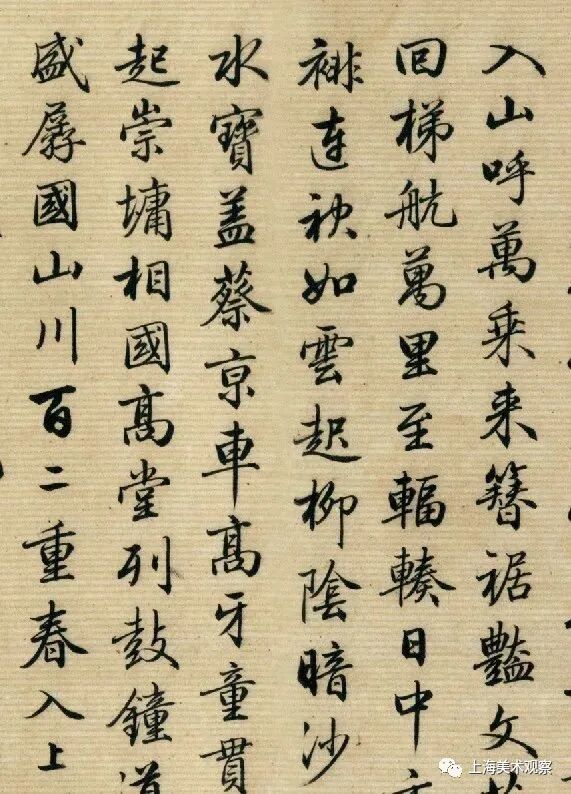 入山呼萬乘来簪裾豔文
回梯航萬里至輻輳日中
裶連袂如雲起柳陰暗沙
水寶盖蔡京車高牙童貫
起崇墉相國高堂列鼓鐘
盛孱國山川百二重春入上
上海美术观察